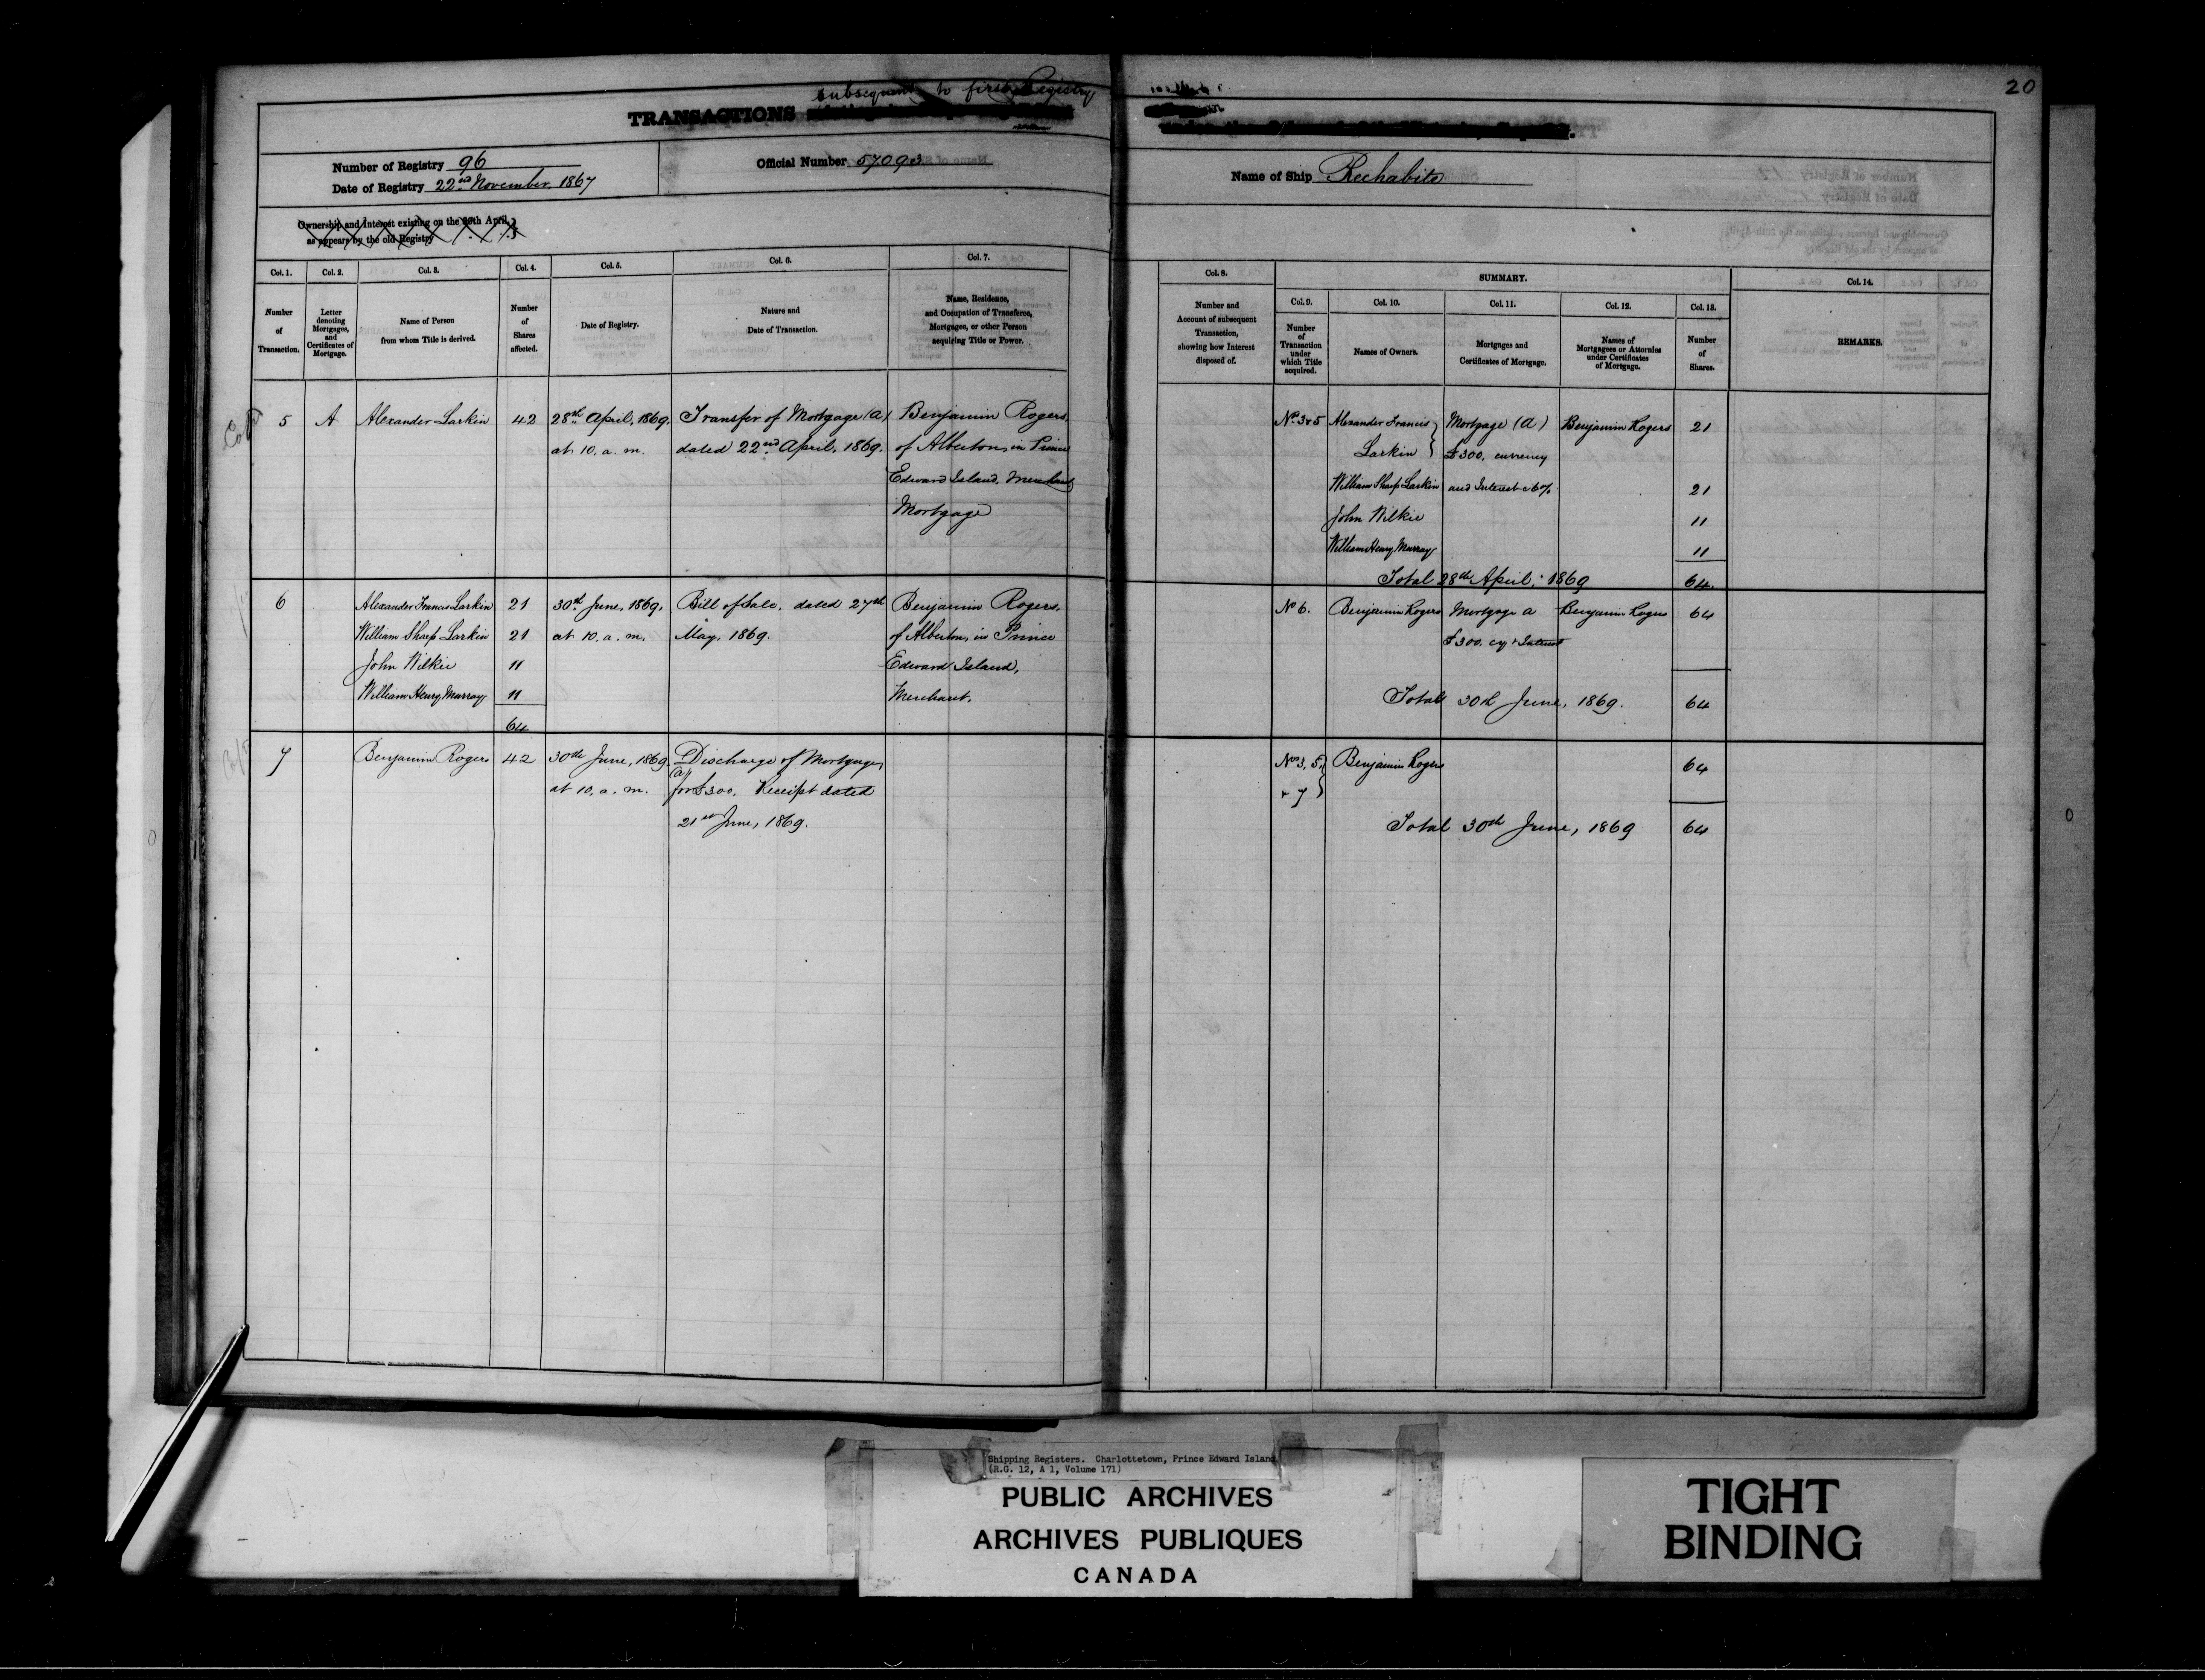 20
subsequent to first Registry
TRANSACTIONS
Number of Registry 96
Date of Registry 22nd November 1867
Official Number 57093
Name of Ship Rechabite
Ownership and Interest existing on the 30th April,
as appears by the old Registry
Col. 1.
Number
of
Transaction.
Col. 2.
Letter
denoting
Mortgages,
and
Certificates of
Mortgage.
Col. 3.
Name of Person
from whom Title is derived.
Col. 4.
Number
of
Shares
affected.
Col. 5.
Date of Registry.
Col. 6.
Nature and
Date of Transaction.
Col. 7.
Name, Residence,
and Occupation of Transferee,
Mortgagee, or other Person
acquiring Title or Power.
Col. 8.
Number and
Account of subsequent
Transaction,
showing how Interest
disposed of.
SUMMARY.
Col. 9.
Number
of
Transaction
under
which Title
acquired.
Col. 10.
Names of Owners.
Col. 11.
Mortgages and
Certificates of Mortgage.
Col. 12.
Names of
Mortgagees or Attornies
under Certificates
of Mortgage.
Col. 13.
Number
of
Shares.
Col. 14.
REMARKS.
5
A
Alexander Larkin
42
28th April, 1869.
at 10. a. m.
Transfer of Mortgage (A)
dated 22nd April, 1869.
Benjamin Rogers,
of Alberton, in Prince
Edward Island, Merchant
Mortgage
No. 3 & 5
Alexander Francis
Larkin
William Sharp Larkin
John Wilkie
William Henry Murray
Mortgage (A)
£300. currency
and Interest @ 6%
Benjamin Rogers
21
21
11
11
Total 28th April, 1869
64.
6
Alexander Francis Larkin
William Sharp Larkin
John Wilkie
William Henry Murray
21
21
11
11
64
30th June, 1869,
at 10. a. m.
Bill of Sale, dated 27th
May, 1869.
Benjamin Rogers,
of Alberton, in Prince
Edward Island,
Merchant.
No 6.
Benjamin Rogers
Mortgage A
£300. cy & Interest
Benjamin Rogers
64
Total 30th June, 1869.
64
7
Benjamin Rogers
42
30th June, 1869
at 10. a. m.
Discharge of Mortgage
(A)
for £300. Receipt dated
21st June, 1869.
Nos 3, 5,
& 7
Benjamin Rogers
64
Total 30th June, 1869
64
Shipping Registers. Charlottetown, Prince Edward Island
(R.G. 12, A 1, Volume 171)
PUBLIC ARCHIVES
ARCHIVES PUBLIQUES
CANADA
TIGHT
BINDING